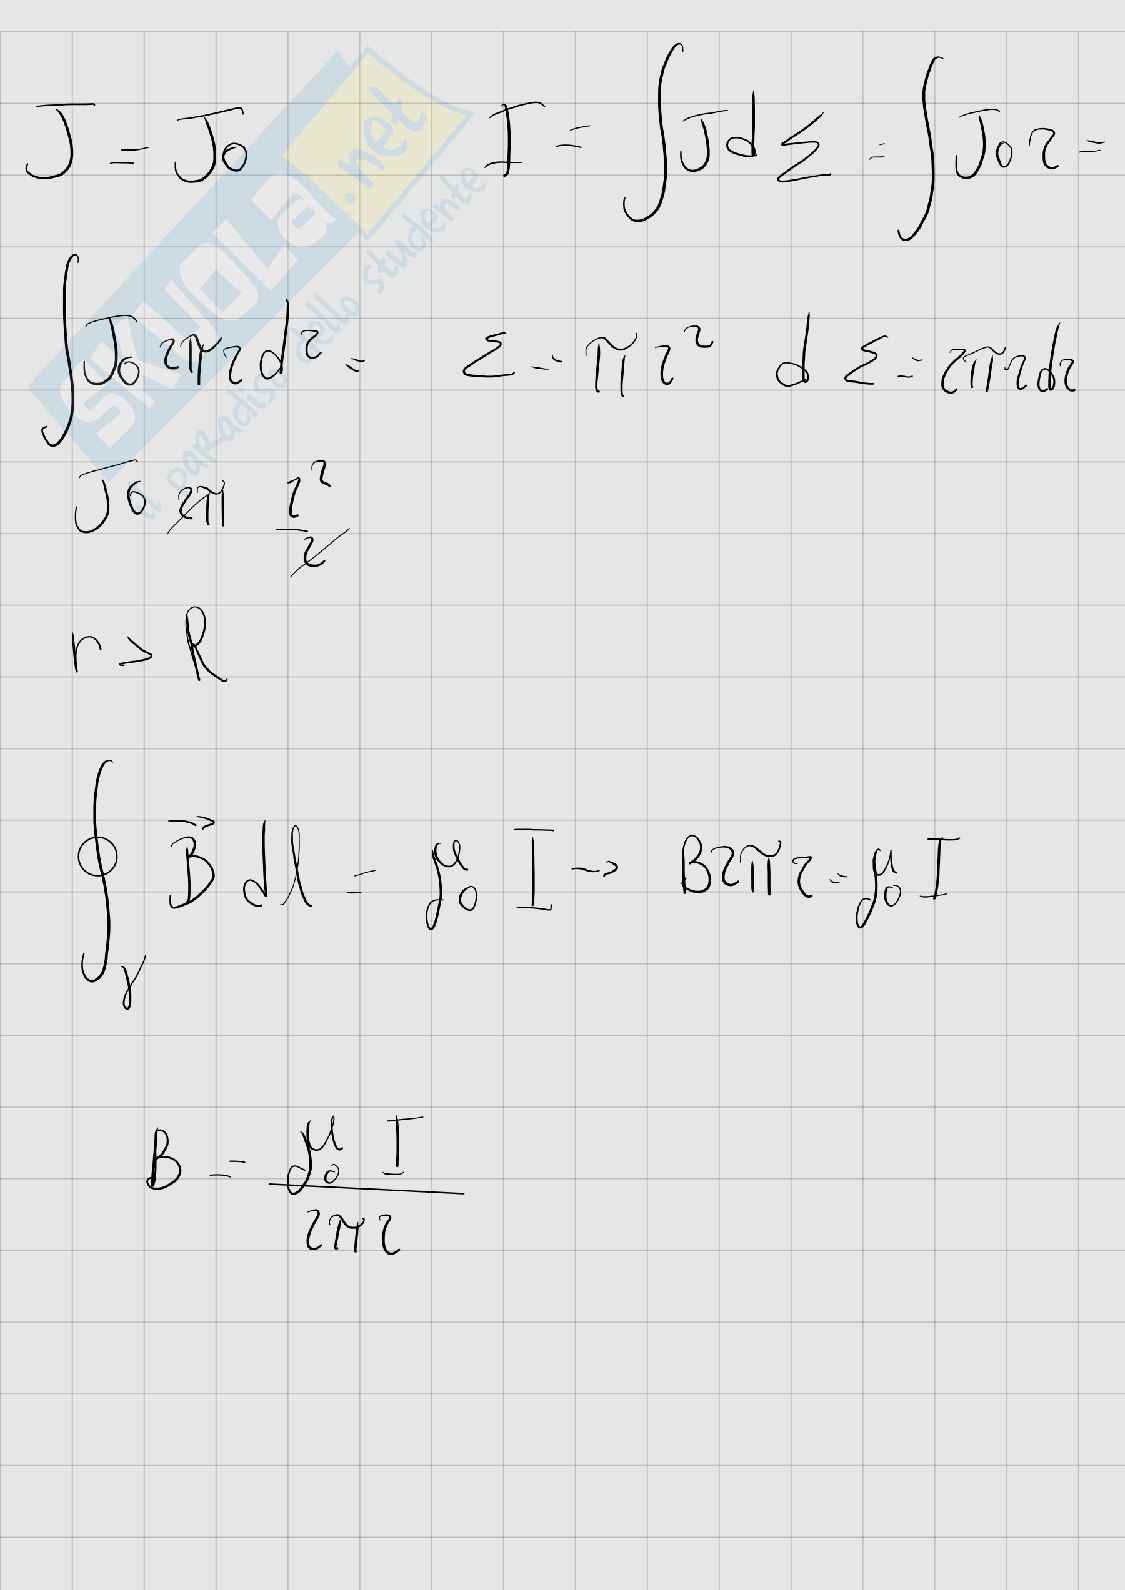 J = J₀ I = ∫ J dΣ = ∫ J₀ r =
∫ J₀ 2πr dr = Σ = πr² dΣ = 2πr dr
J₀ 2π r²/2
r > R
∮γ B⃗ dl = μ₀ I → B2πr = μ₀ I
B = μ₀ I / 2πr
SKUOLA.net
il paradiso dello studente